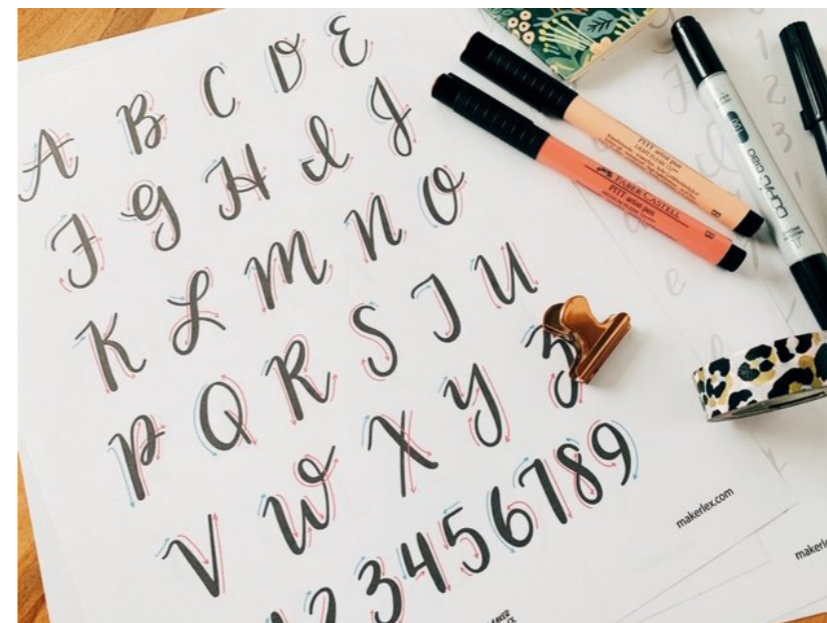 A B C D E
F G H I J
K L M N O
P Q R S T U
V W X Y Z
1 2 3 4 5 6 7 8 9
makerlex.com
PITT artist pen
FABER-CASTELL
PITT artist pen
B
B
COPIC CIAO
1
2
3
e